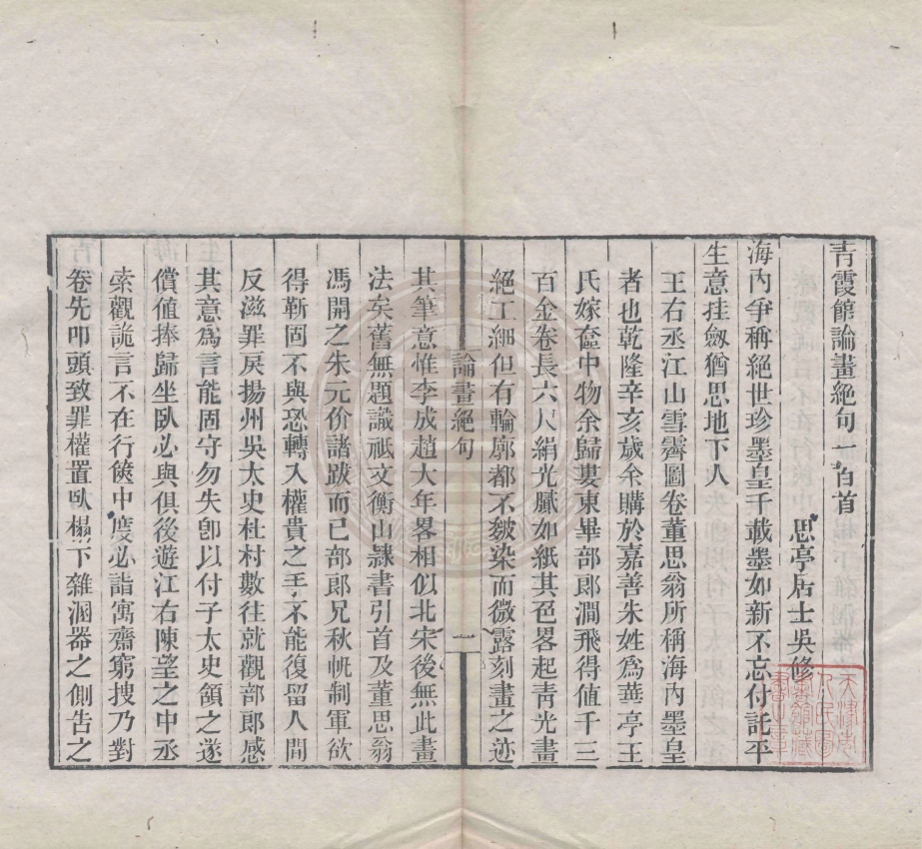 青霞館論畫絕句一百首
思亭居士吳修
海內爭稱絕世珍墨皇千載墨如新不忘付託平
生意挂劔猶思地下人
王右丞江山雪霽圖卷董思翁所稱海內墨皇
者也乾隆辛亥歲余購於嘉善朱姓爲華亭王
氏嫁奩中物余歸婁東畢部郎澗飛得值千三
百金卷長六尺絹光膩如紙其色畧起靑光畫
絕工細但有輪廓都不皴染而微露刻畫之迹
論畫絕句
一
其筆意惟李成趙大年畧相似北宋後無此畫
法矣舊無題識祗文衡山隸書引首及董思翁
馮開之朱元价諸跋而已部郎兄秋帆制軍欲
得靳固不與恐轉入權貴之手不能復留人間
反滋罪戾揚州吳太史杜村數往就觀部郎感
其意爲言能固守勿失卽以付子太史領之遂
償值捧歸坐臥必與俱後遊江右陳望之中丞
索觀詭言不在行篋中度必詣寓齋窮搜乃對
卷先叩頭致罪權置臥榻下雜溷器之側告之
天津市人民圖書館藏書之章